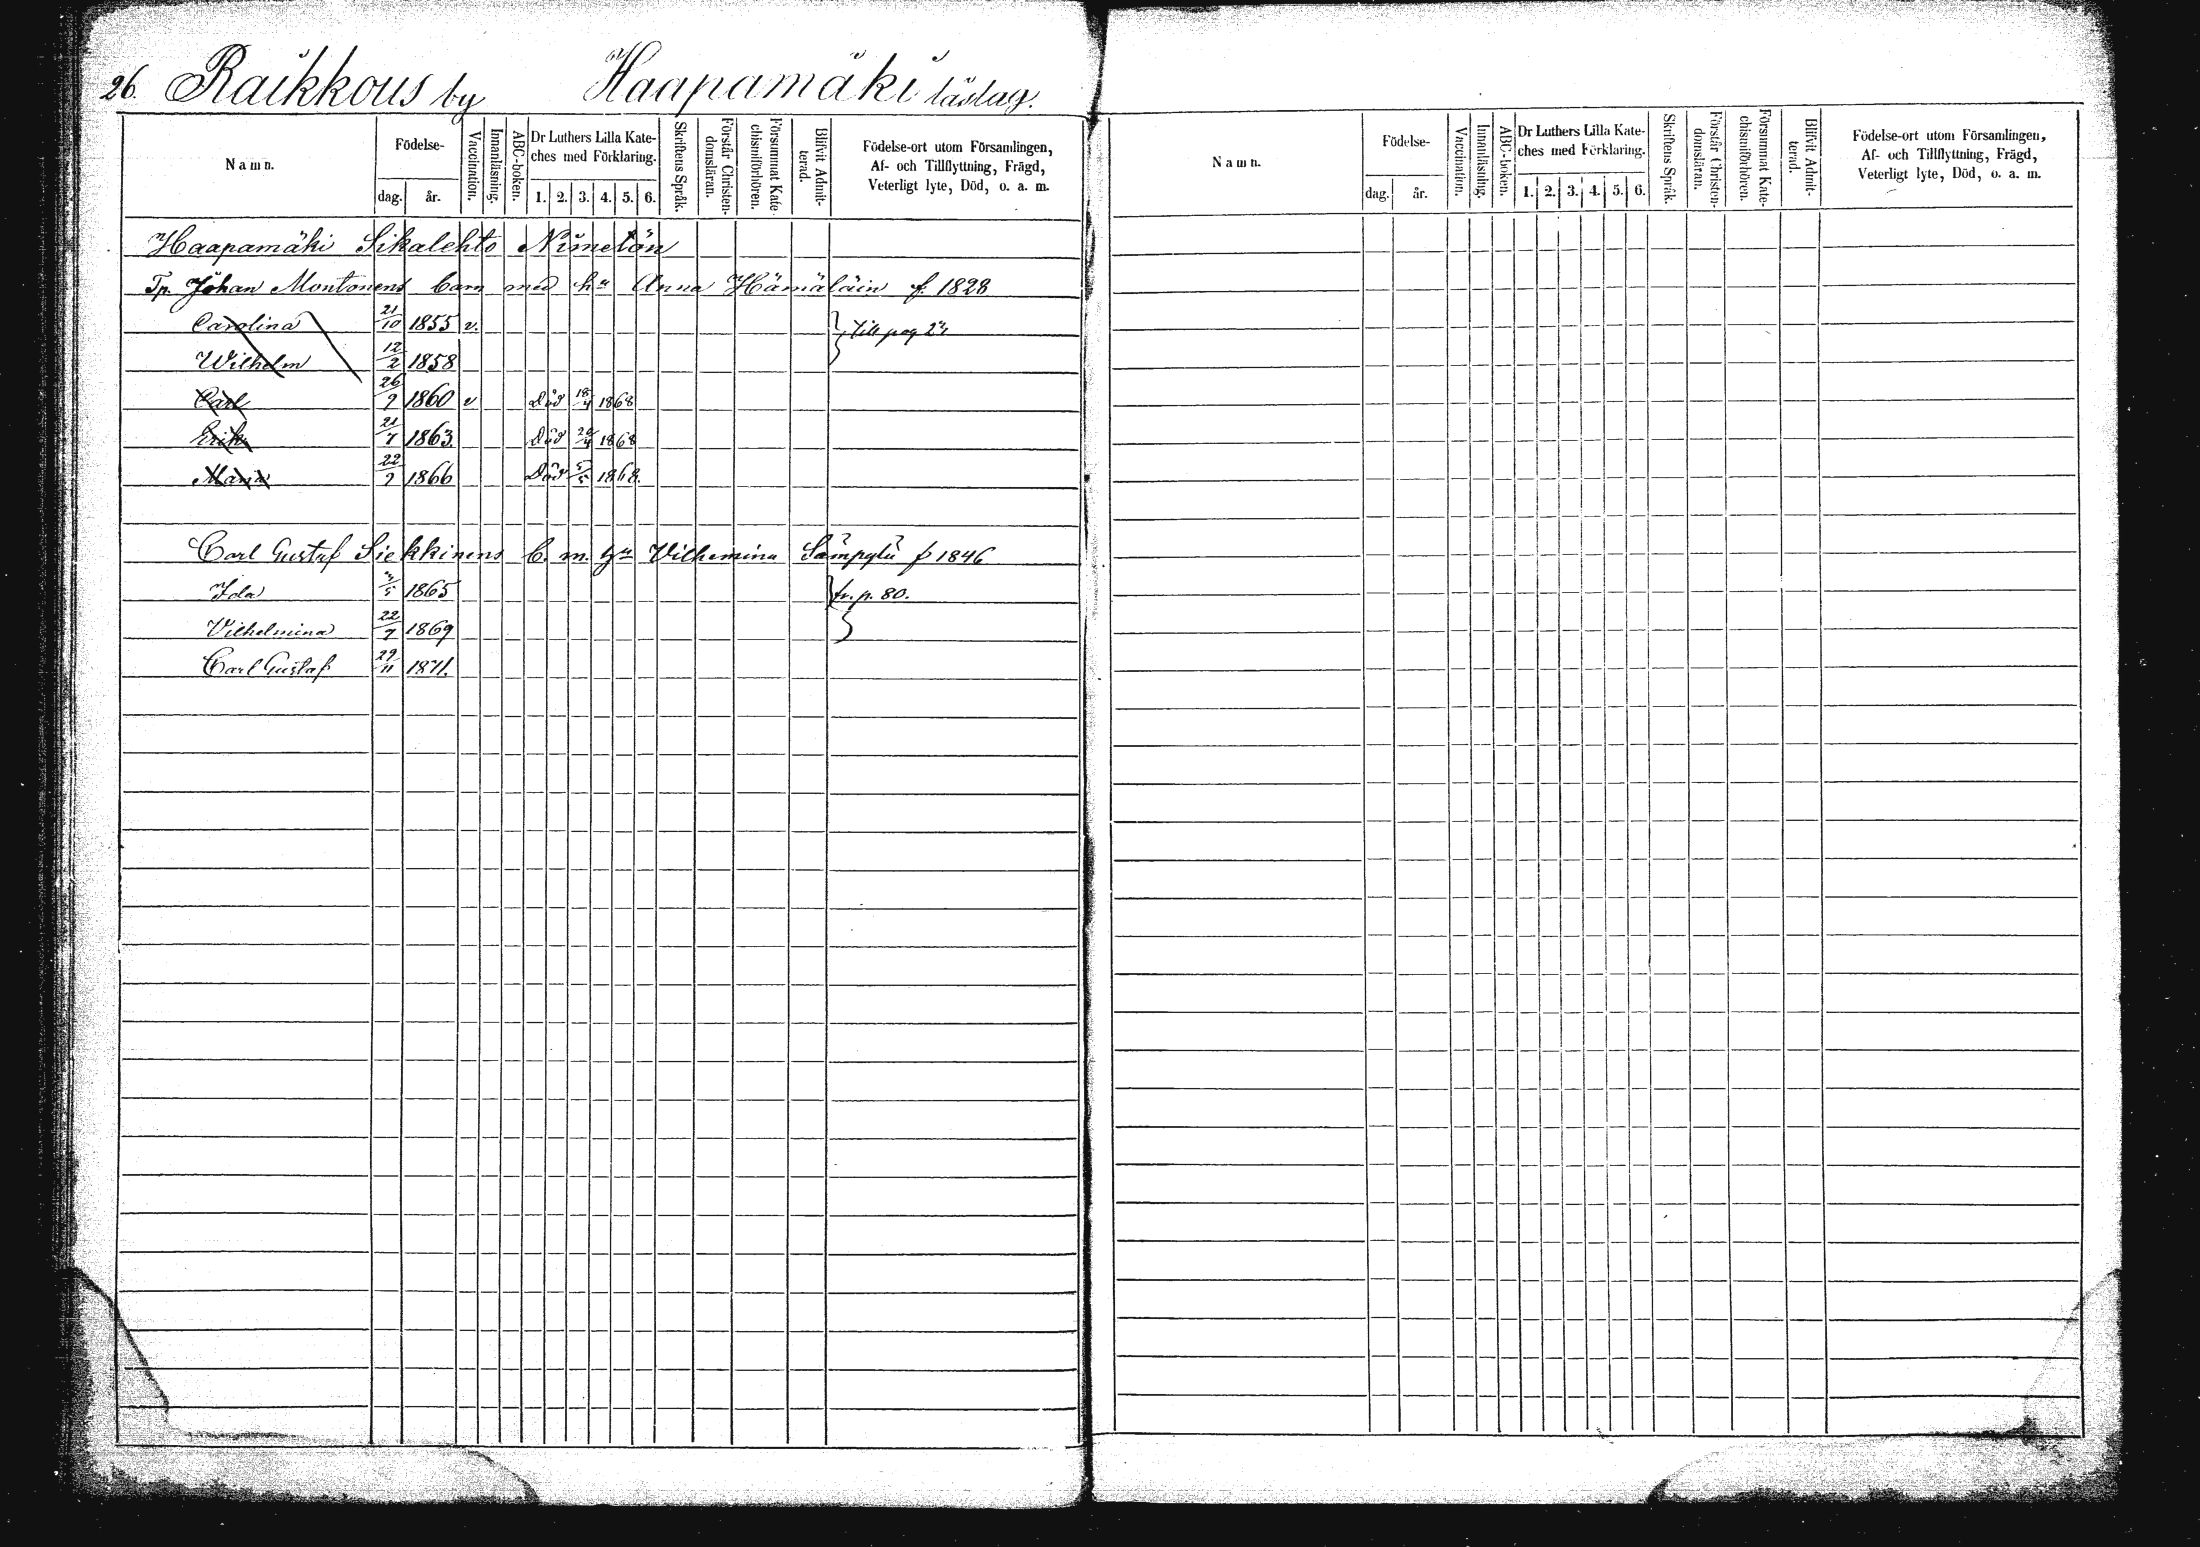 26. Raikkous by Haapamäki läslag.
Namn. Födelse- dag. år. Vaccination. Innanläsning. ABC-boken. Dr Luthers Lilla Kateches med Förklaring. 1. 2. 3. 4. 5. 6. Skriftens Språk. Förstår Christendomsläran. Försummat Katechismiförhören. Blifvit Admitterad. Födelse-ort utom Församlingen, Af- och Tillflyttning, Frägd, Veterligt lyte, Död, o. a. m.
Haapamäki Sikalehto Nimetön
Tp. Johan Montonens barn med hu Anna Hämäläin f. 1828
Carolina 21/10 1855 v. Till pag
Wilhelm 12/2 1858
Carl 26/2 1860 v Död 18/4 1868
Erik 21/7 1863 Död 20/4 1868
Maria 22/2 1866 Död 5/5 1868.
Carl Gustaf Siekkinens b. m. hu Vilhemina f 1846
Ida 1865 tr. p. 80.
Vilhelmina 22/7 1869
Carl Gustaf 29/11 1871.
Namn. Födelse- dag. år. Vaccination. Innanläsning. ABC-boken. Dr Luthers Lilla Kateches med Förklaring. 1. 2. 3. 4. 5. 6. Skriftens Språk. Förstår Christendomsläran. Försummat Katechismiförhören. Blifvit Admitterad. Födelse-ort utom Församlingen, Af- och Tillflyttning, Frägd, Veterligt lyte, Död, o. a. m.